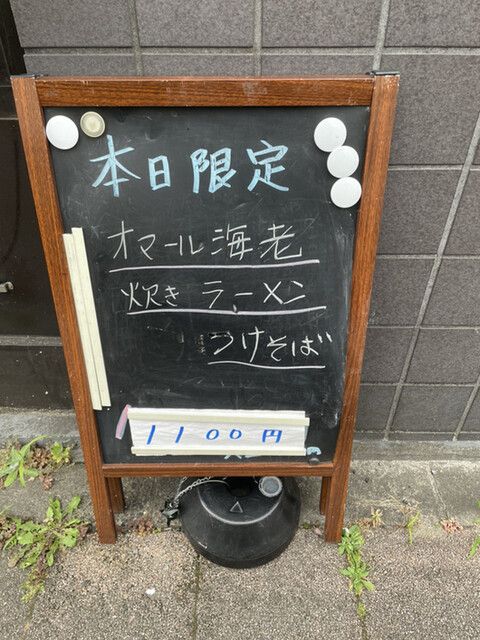 本日限定
オマール海老
炊き ラーメン
つけそば
1100円